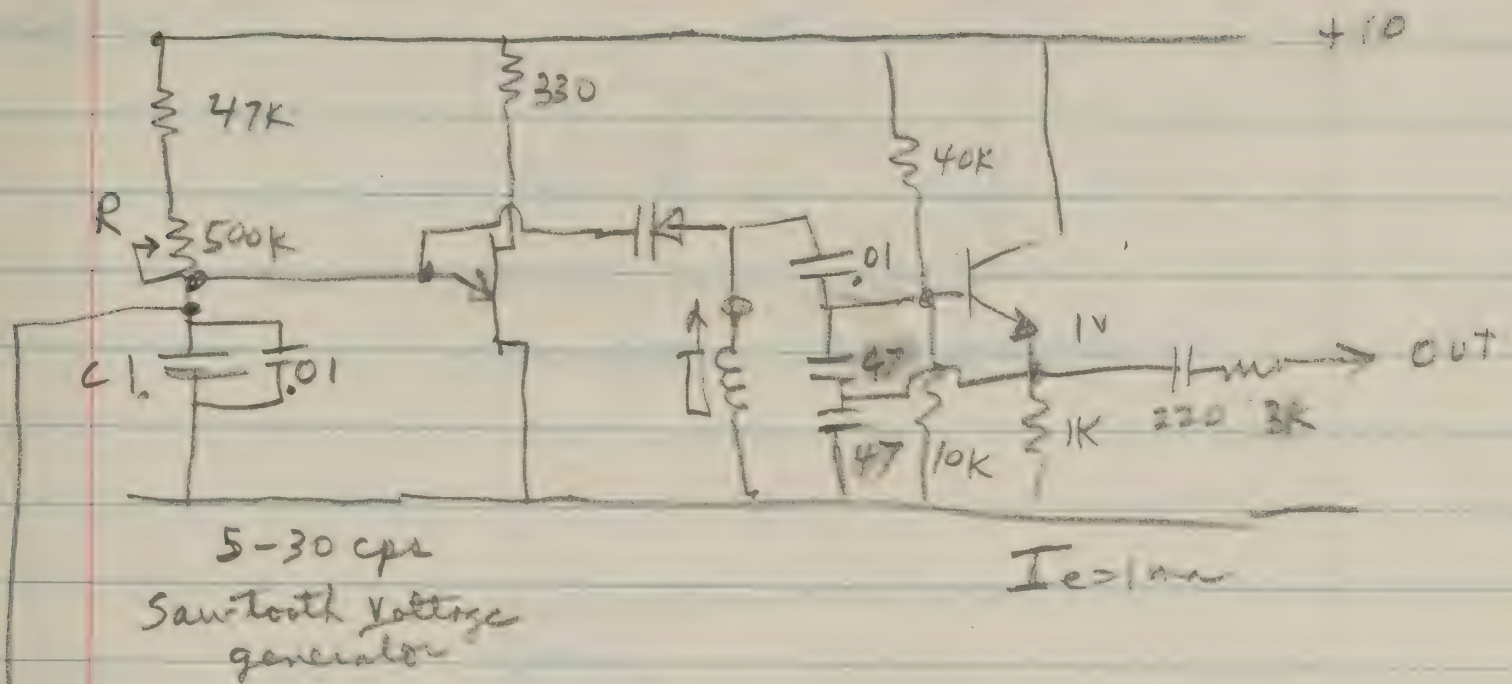 +10
47K
330
40K
R
500K
.01
1V
C 1.
.01
47
OUT
1K
220 3K
47
10K
5-30 cps
Sawtooth Voltage
generator
Ie=1ma